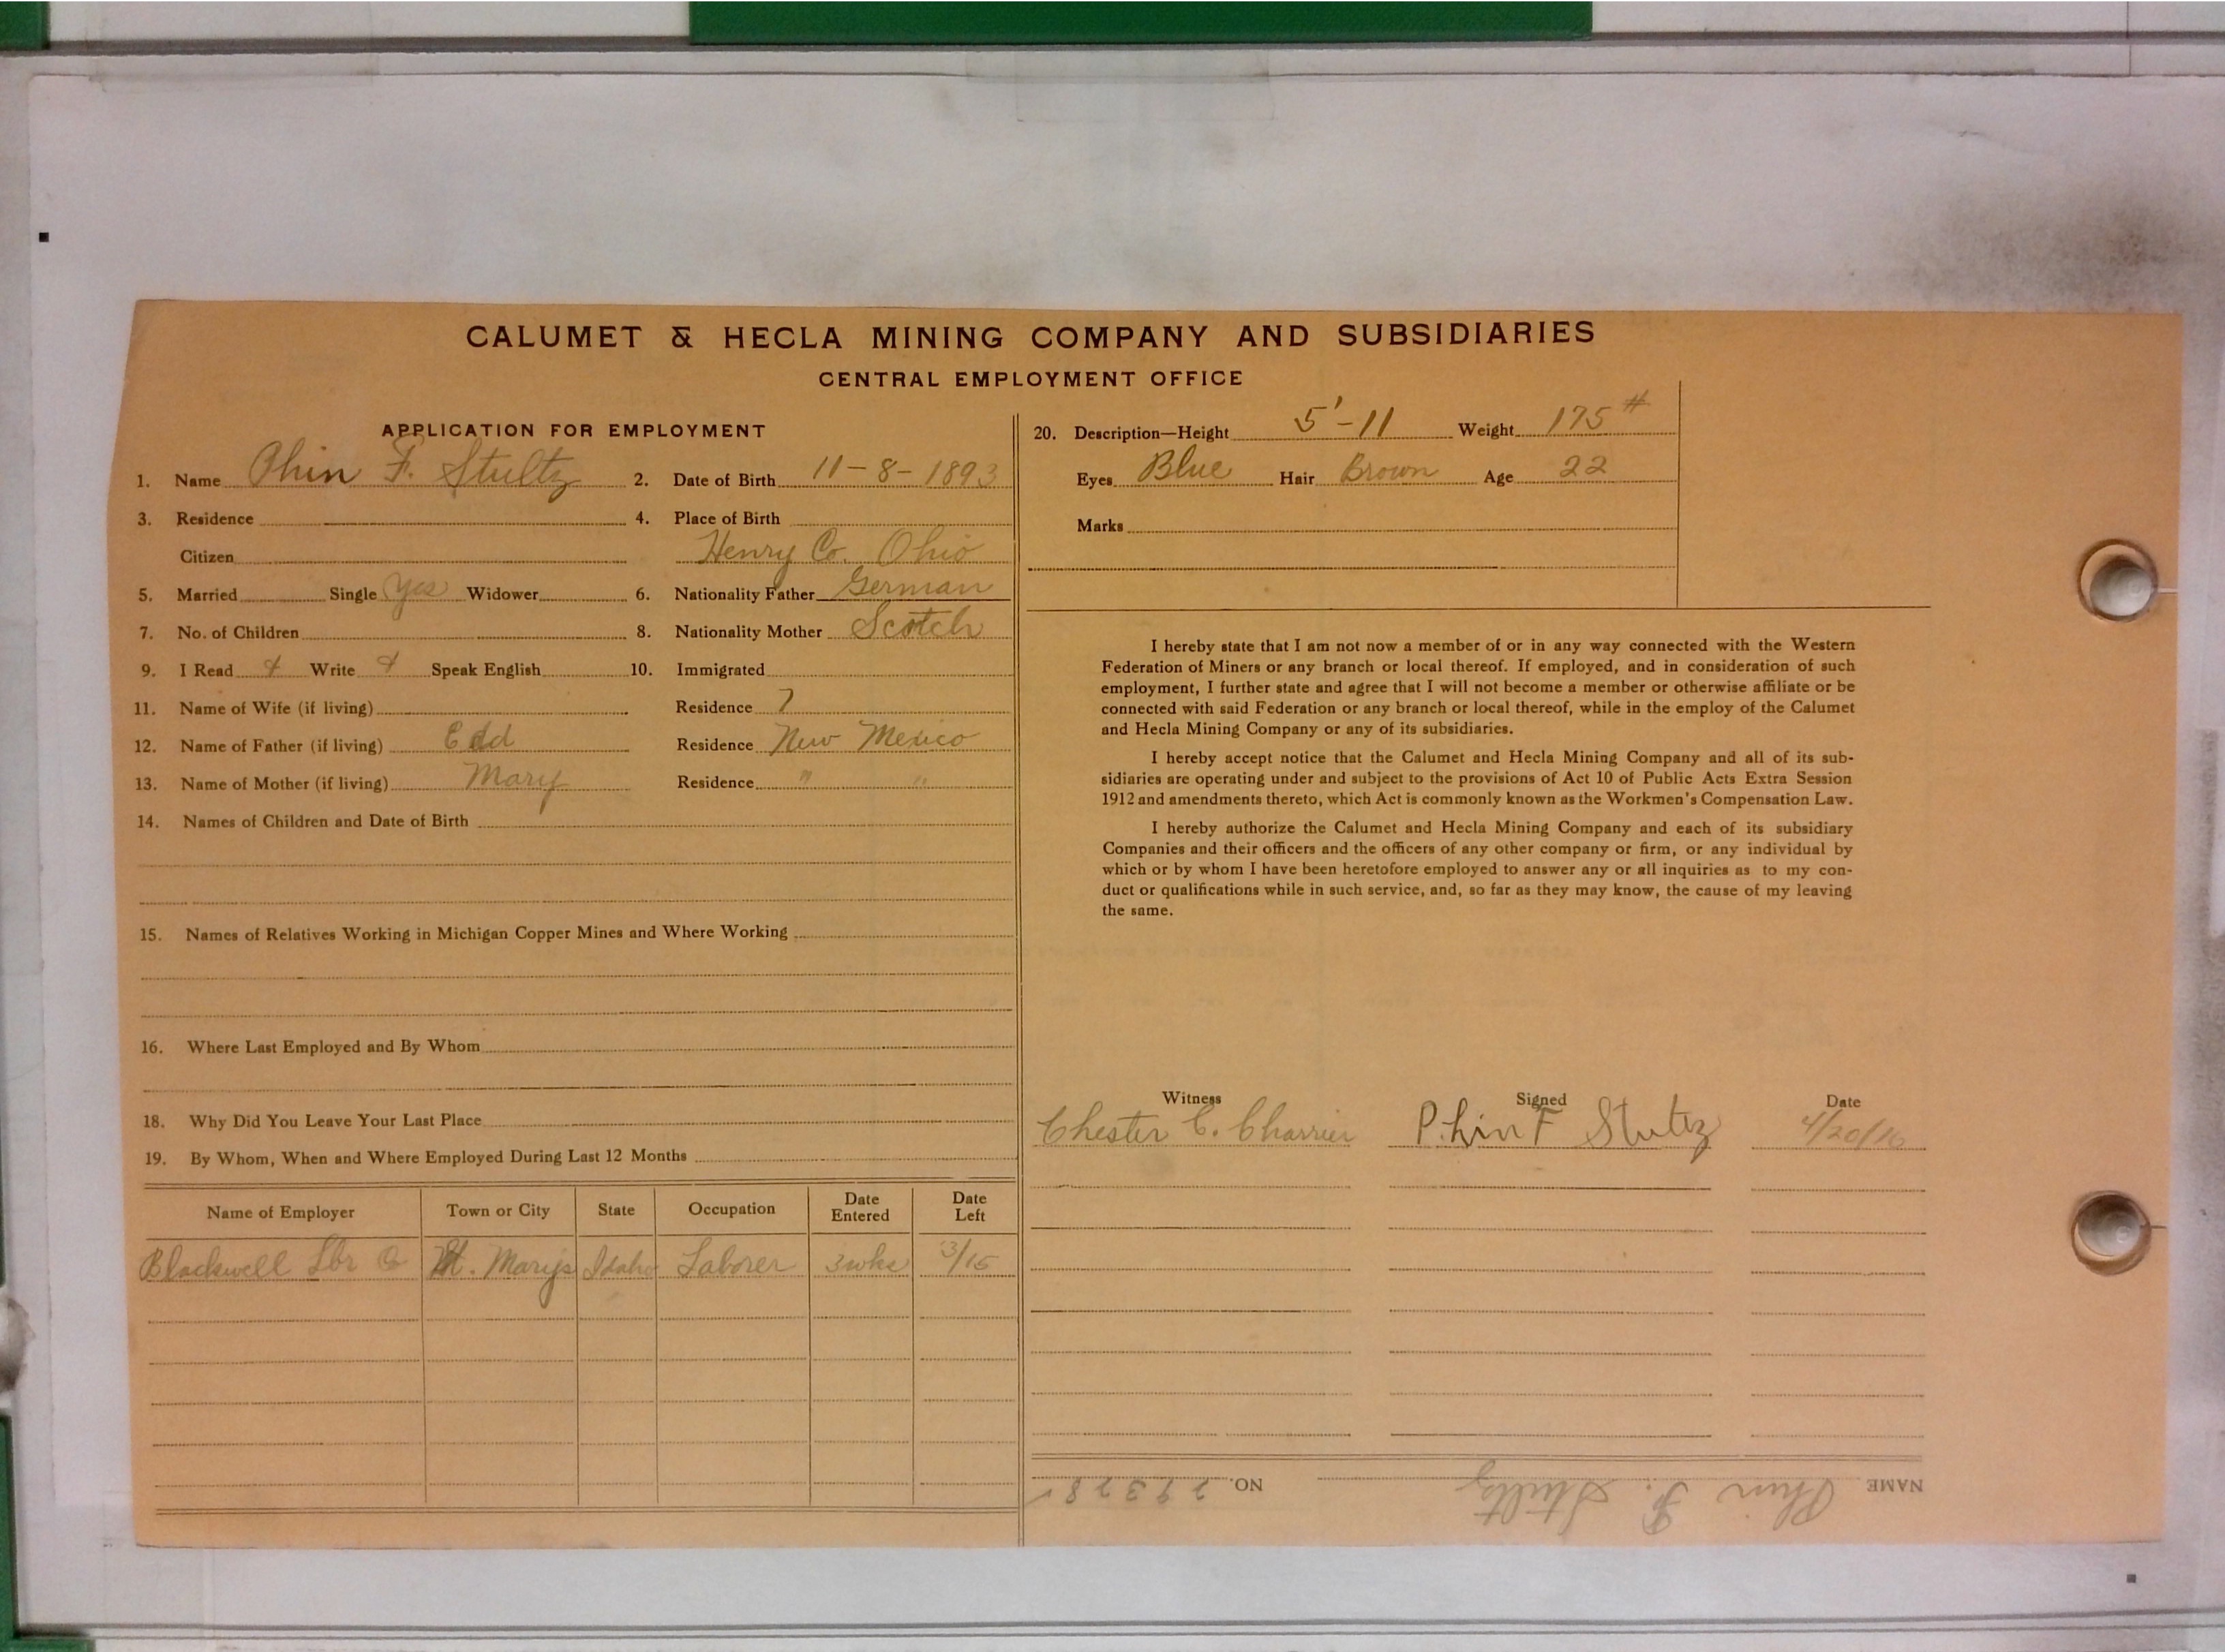 CALUMET & HECLA MINING COMPANY AND SUBSIDIARIES
CENTRAL EMPLOYMENT OFFICE
APPLICATION FOR EMPLOYMENT
1. Name Phin F. Stultz 2. Date of Birth 11-8-1893
3. Residence 4. Place of Birth
Citizen Henry Co. Ohio
5. Married Single Yes Widower 6. Nationality Father German
7. No. of Children 8. Nationality Mother Scotch
9. I Read Write Speak English 10. Immigrated
11. Name of Wife (if living) Residence
12. Name of Father (if living) Edd Residence New Mexico
13. Name of Mother (if living) Mary Residence " "
14. Names of Children and Date of Birth
15. Names of Relatives Working in Michigan Copper Mines and Where Working
16. Where Last Employed and By Whom
18. Why Did You Leave Your Last Place
19. By Whom, When and Where Employed During Last 12 Months
Name of Employer Town or City State Occupation Date Entered Date Left
Blackwell Lbr Co St. Marys Idaho Laborer 3 wks 3/15
20. Description—Height 5'-11 Weight 175 #
Eyes Blue Hair Brown Age 22
Marks
I hereby state that I am not now a member of or in any way connected with the Western
Federation of Miners or any branch or local thereof. If employed, and in consideration of such
employment, I further state and agree that I will not become a member or otherwise affiliate or be
connected with said Federation or any branch or local thereof, while in the employ of the Calumet
and Hecla Mining Company or any of its subsidiaries.
I hereby accept notice that the Calumet and Hecla Mining Company and all of its sub-
sidiaries are operating under and subject to the provisions of Act 10 of Public Acts Extra Session
1912 and amendments thereto, which Act is commonly known as the Workmen's Compensation Law.
I hereby authorize the Calumet and Hecla Mining Company and each of its subsidiary
Companies and their officers and the officers of any other company or firm, or any individual by
which or by whom I have been heretofore employed to answer any or all inquiries as to my con-
duct or qualifications while in such service, and, so far as they may know, the cause of my leaving
the same.
Witness Signed Date
Chester C. Charrier Phin F Stultz 4/20/16
NAME Phin F. Stultz NO. 29328